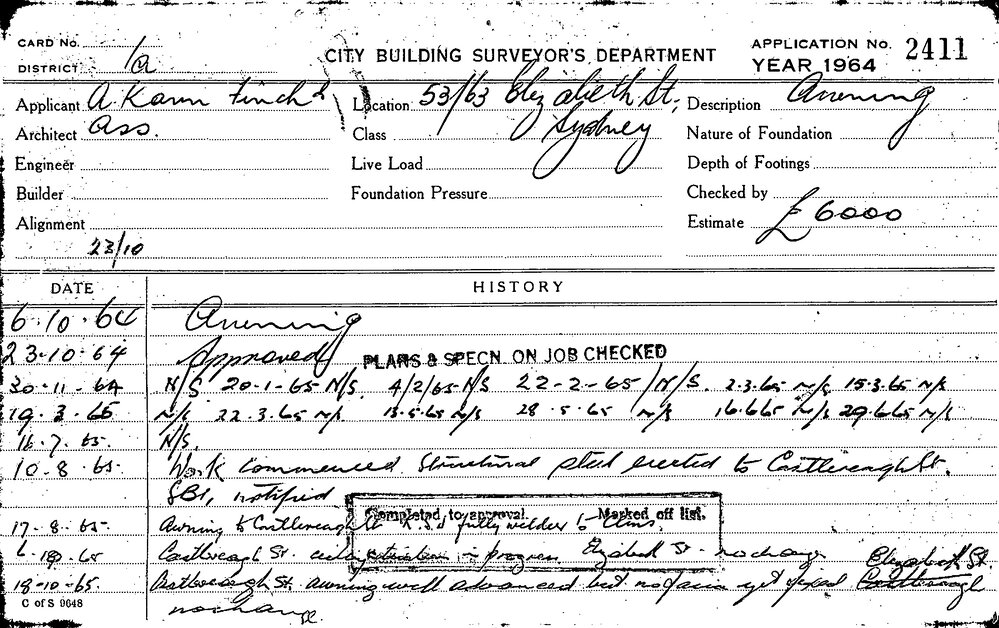 CARD No.
CITY BUILDING SURVEYOR'S DEPARTMENT
APPLICATION No. 2411
DISTRICT 1a
YEAR 1964
Applicant A Kann Finch &
Location 53/63 Elizabeth St,
Description Awening
Architect Ass.
Class Sydney
Nature of Foundation
Engineer
Live Load
Depth of Footings
Builder
Foundation Pressure
Checked by
Alignment
Estimate £6000
23/10
DATE
HISTORY
6.10.64 Awening
23.10.64 Approved PLANS & SPECN. ON JOB CHECKED
30-11-64 N/S 20-1-65 N/S. 4/2/65 N/S 22-2-65 N/S. 2.3.65 N/S 15.3.65 N/S
19.3.65 N/S 22.3.65 N/S 13.5.65 N/S 28.5.65 N/S 16.6.65 N/S 29.6.65 N/S
16.7.65. N/S.
10-8.65- Work commenced. Structural steel erected to Castlereagh St.
notified
Completed to approval. Marked off list.
17-8-65- Awning to Castlereagh St fully welded to
65 Castlereagh St. in progress Elizabeth St. no change
18-10-65. Castlereagh St. awning well advanced but no yet fixed Castlereagh
Elizabeth St.
no change
C of S 9648